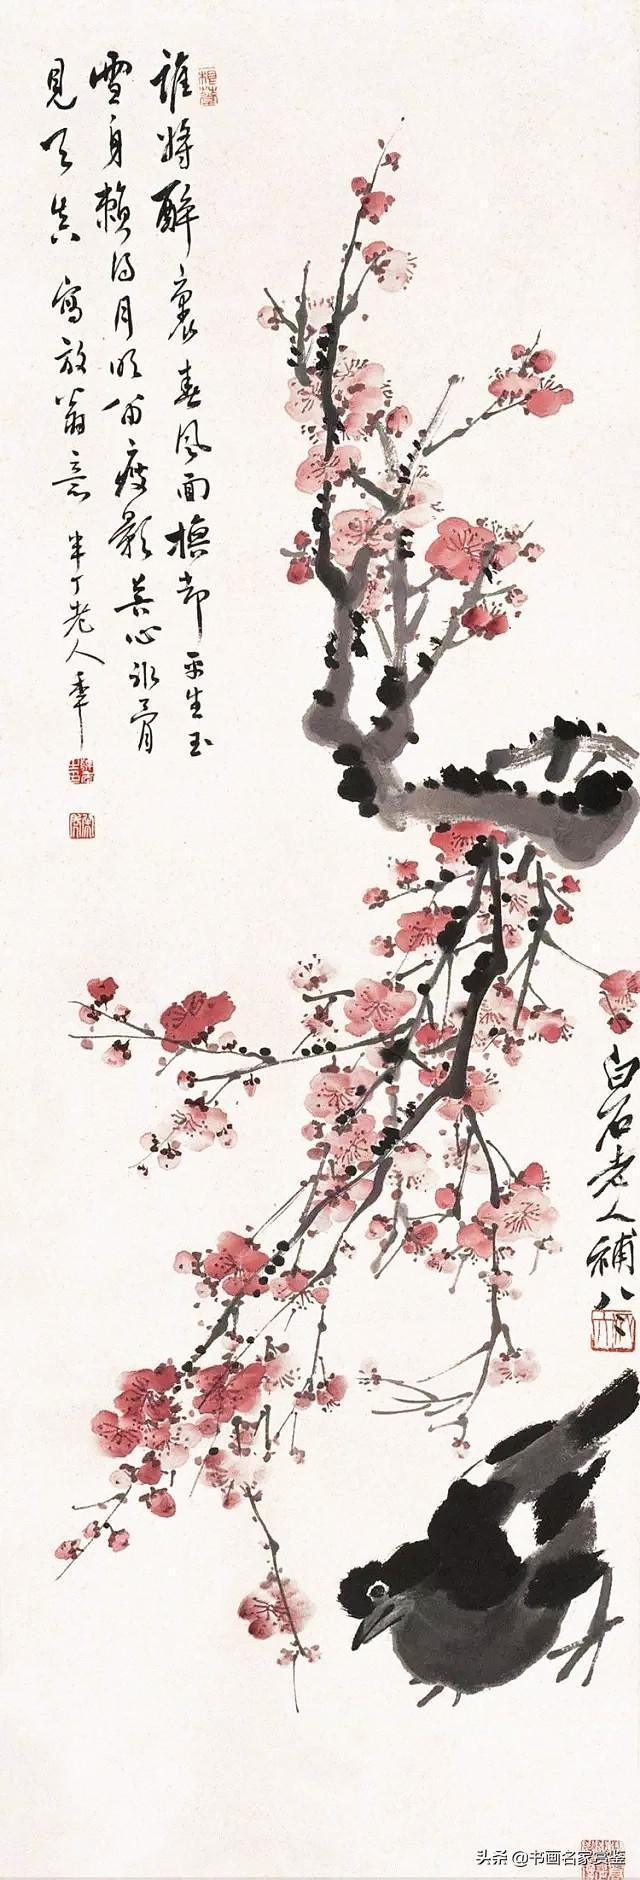 誰將醉裏春風面換却平生玉
雪身賴得月明留瘦影苦心冰骨
見天真 寫放翁意 半丁老人年
白石老人補八
头条 @书画名家赏鉴